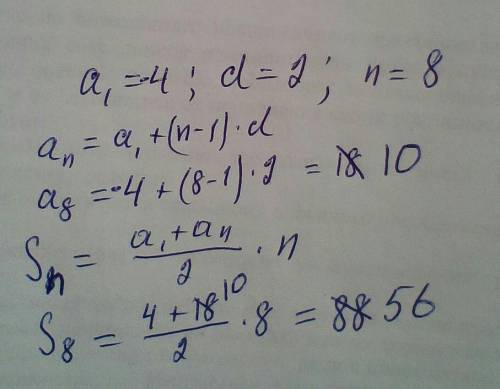 a₁ = -4 ; d = 2 ; n = 8
aₙ = a₁ + (n-1) · d
a₈ = -4 + (8-1) · 2 = ~~18~~ 10
Sₙ = (a₁ + aₙ)/2 · n
S₈ = (4 + ~~18~~ 10)/2 · 8 = ~~88~~ 56